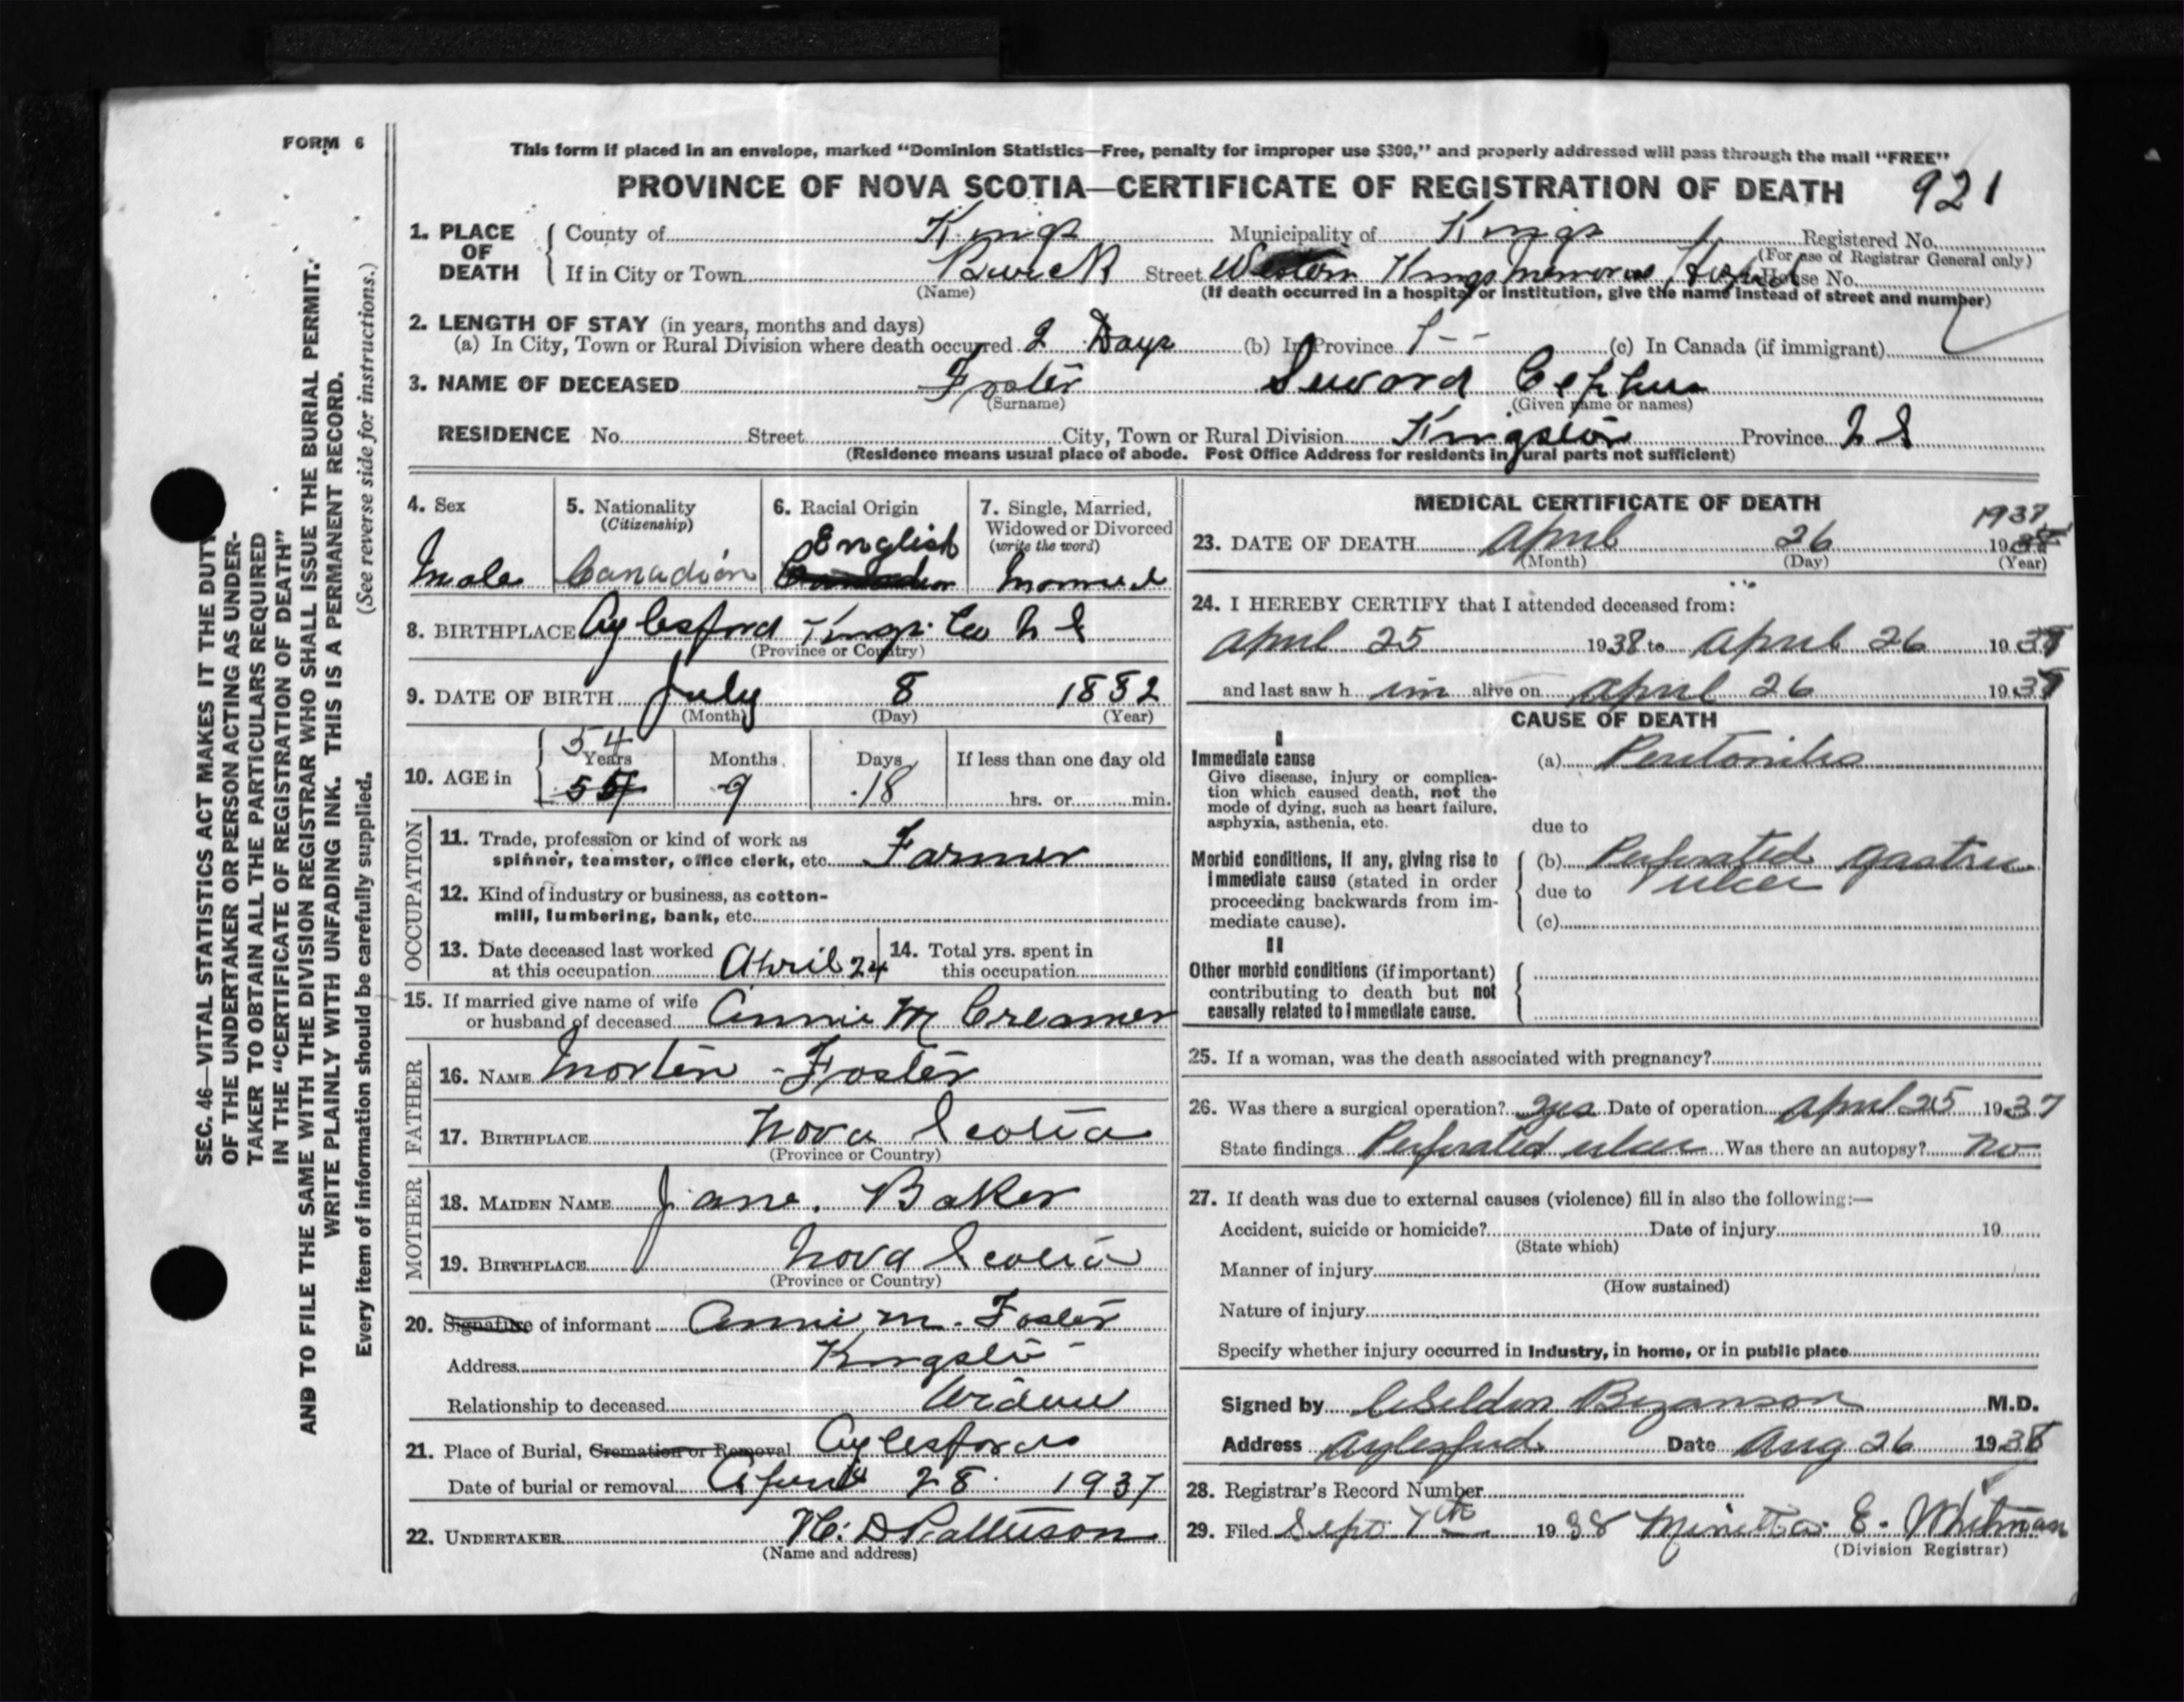 FORM 6
This form if placed in an envelope, marked "Dominion Statistics—Free, penalty for improper use $300," and properly addressed will pass through the mail "FREE"
PROVINCE OF NOVA SCOTIA—CERTIFICATE OF REGISTRATION OF DEATH 921
1. PLACE OF DEATH
County of Kings Municipality of Kings Registered No.
(For use of Registrar General only)
If in City or Town Berwick Street Western Kings Memorial Hospital House No.
(Name) (If death occurred in a hospital or institution, give the name instead of street and number)
2. LENGTH OF STAY (in years, months and days)
(a) In City, Town or Rural Division where death occurred 2 Days (b) In Province (c) In Canada (if immigrant)
3. NAME OF DECEASED Foster Seward Cephus
(Surname) (Given name or names)
RESIDENCE No. Street City, Town or Rural Division Kingston Province N S
(Residence means usual place of abode. Post Office Address for residents in rural parts not sufficient)
4. Sex Male
5. Nationality (Citizenship) Canadian
6. Racial Origin English Canadian
7. Single, Married, Widowed or Divorced (write the word) Married
8. BIRTHPLACE Aylesford Kings Co N S
(Province or Country)
9. DATE OF BIRTH July 8 1882
(Month) (Day) (Year)
10. AGE in 54 Years Months 9 Days 18 If less than one day old
hrs. or min.
OCCUPATION
11. Trade, profession or kind of work as
spinner, teamster, office clerk, etc. Farmer
12. Kind of industry or business, as cotton-
mill, lumbering, bank, etc.
13. Date deceased last worked at this occupation April 24
14. Total yrs. spent in this occupation
15. If married give name of wife
or husband of deceased Annie M Creamer
FATHER
16. NAME Morten Foster
17. BIRTHPLACE Nova Scotia
(Province or Country)
MOTHER
18. MAIDEN NAME Jane Baker
19. BIRTHPLACE Nova Scotia
(Province or Country)
20. Signature of informant Annie M. Foster
Address Kingston
Relationship to deceased Widow
21. Place of Burial, Cremation or Removal Aylesford
Date of burial or removal April 28 1937
22. UNDERTAKER
(Name and address)
MEDICAL CERTIFICATE OF DEATH
1937
23. DATE OF DEATH April 26 19
(Month) (Day) (Year)
24. I HEREBY CERTIFY that I attended deceased from:
April 25 1938 to April 26 1937
and last saw h im alive on April 26 1937
CAUSE OF DEATH
I
Immediate cause (a) Peritonitis
Give disease, injury or complica-
tion which caused death, not the
mode of dying, such as heart failure,
asphyxia, asthenia, etc.
due to
Morbid conditions, if any, giving rise to (b) Perforated gastric
immediate cause (stated in order due to ulcer
proceeding backwards from im-
mediate cause). (c)
II
Other morbid conditions (if important)
contributing to death but not
causally related to immediate cause.
25. If a woman, was the death associated with pregnancy?
26. Was there a surgical operation? yes Date of operation April 25 1937
State findings Perforated ulcer Was there an autopsy? no
27. If death was due to external causes (violence) fill in also the following:—
Accident, suicide or homicide? Date of injury 19
(State which)
Manner of injury
(How sustained)
Nature of injury
Specify whether injury occurred in Industry, in home, or in public place
Signed by Bezanson M.D.
Address Aylesford Date Aug 26 1938
28. Registrar's Record Number
29. Filed Sept 7th 1938 Minetta E. Whitman
(Division Registrar)
SEC. 46—VITAL STATISTICS ACT MAKES IT THE DUTY
OF THE UNDERTAKER OR PERSON ACTING AS UNDER-
TAKER TO OBTAIN ALL THE PARTICULARS REQUIRED
IN THE "CERTIFICATE OF REGISTRATION OF DEATH"
AND TO FILE THE SAME WITH THE DIVISION REGISTRAR WHO SHALL ISSUE THE BURIAL PERMIT.
WRITE PLAINLY WITH UNFADING INK. THIS IS A PERMANENT RECORD.
Every item of information should be carefully supplied. (See reverse side for instructions.)